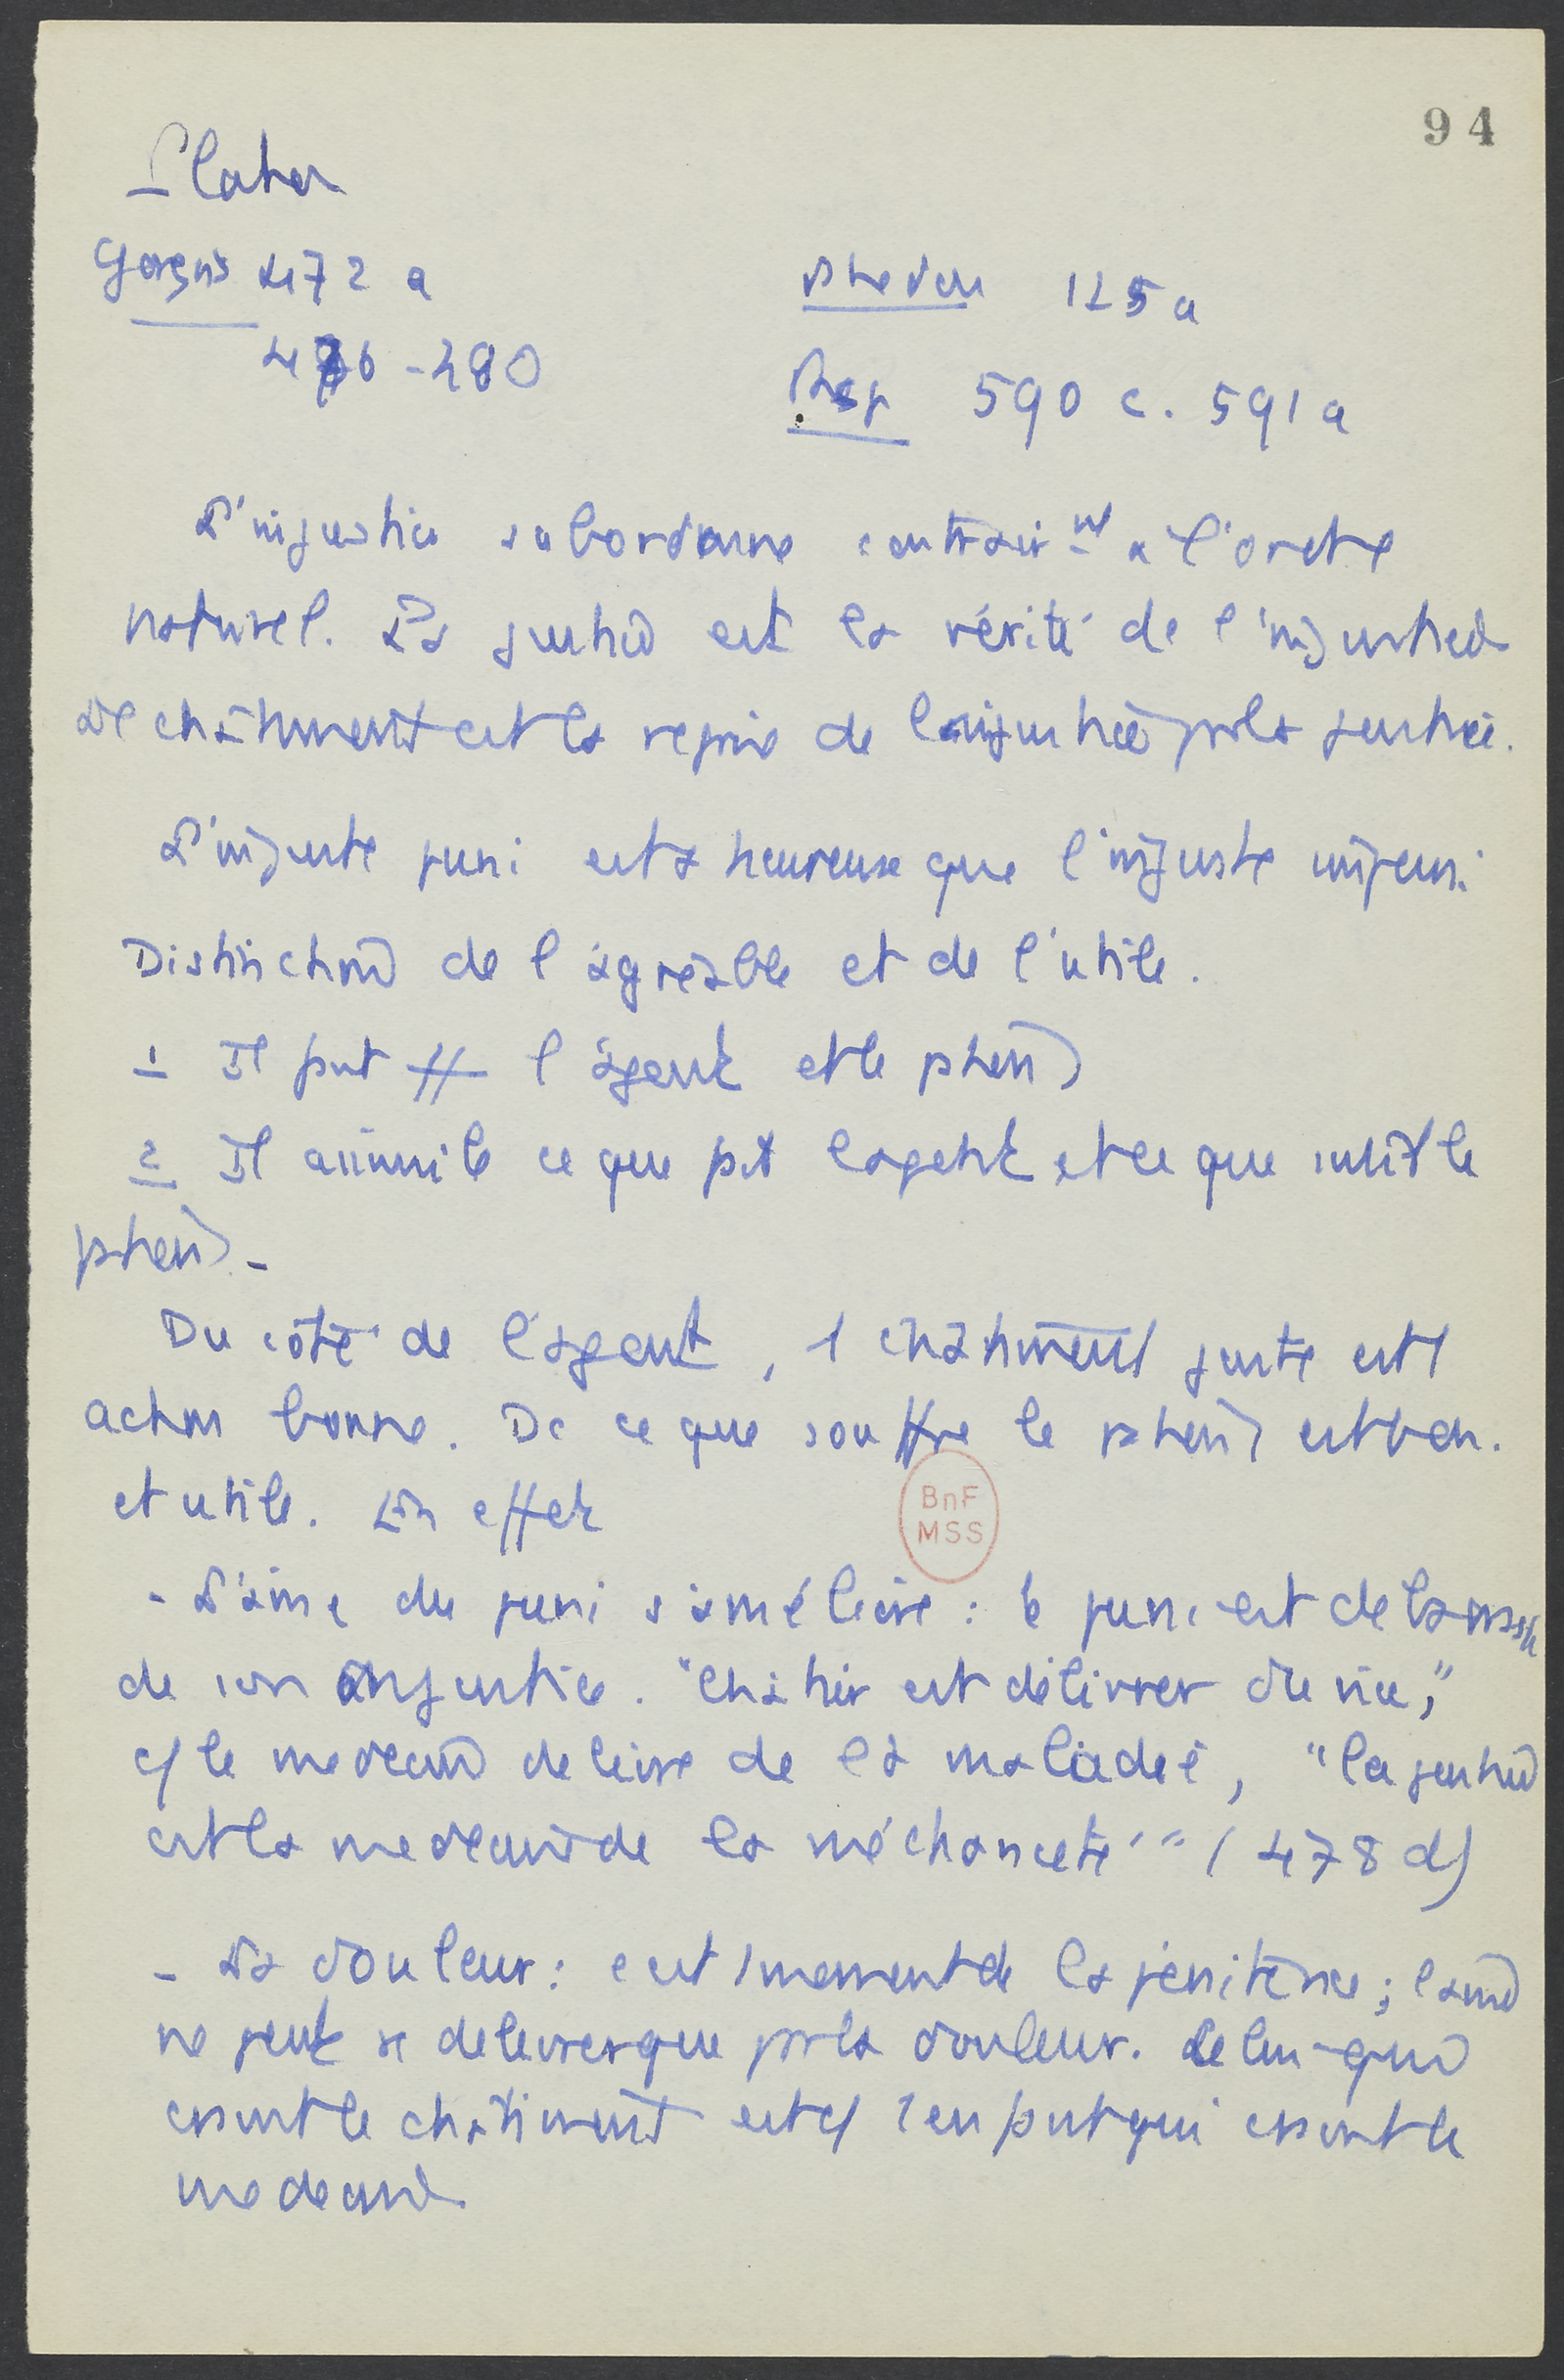 94
Platon
Gorgias 472 a
476-480
Phédon 125a
Rep 590 c. 591a
L'injustice subordonne contrair-nt à l'ordre
naturel. La justice est la vérité de l'injustice
Le châtiment est la reprise de l'injustice par la justice.
L'injuste puni est + heureux que l'injuste impuni
Distinction de l'agréable et de l'utile.
1 Il faut l'agent et le patient
2 Il assimile ce que fait l'agent et ce que subit le
patient -
Du côté de l'agent, 1 châtiment juste est 1
action bonne. Dc ce que souffre le patient est bon.
et utile. En effet
BnF
MSS
- L'âme du puni s'améliore : le puni est
de son injustice. "Châtier est délivrer du vice,"
c/ le médecin délivre de la maladie, "la justice
est la médecine de la méchanceté" (478 d)
- La douleur : c'est 1 moment de la pénitence ; l'âme
ne peut se délivrer que par la douleur. Celui qui
craint le châtiment est c/ 1 enfant qui craint le
médecin